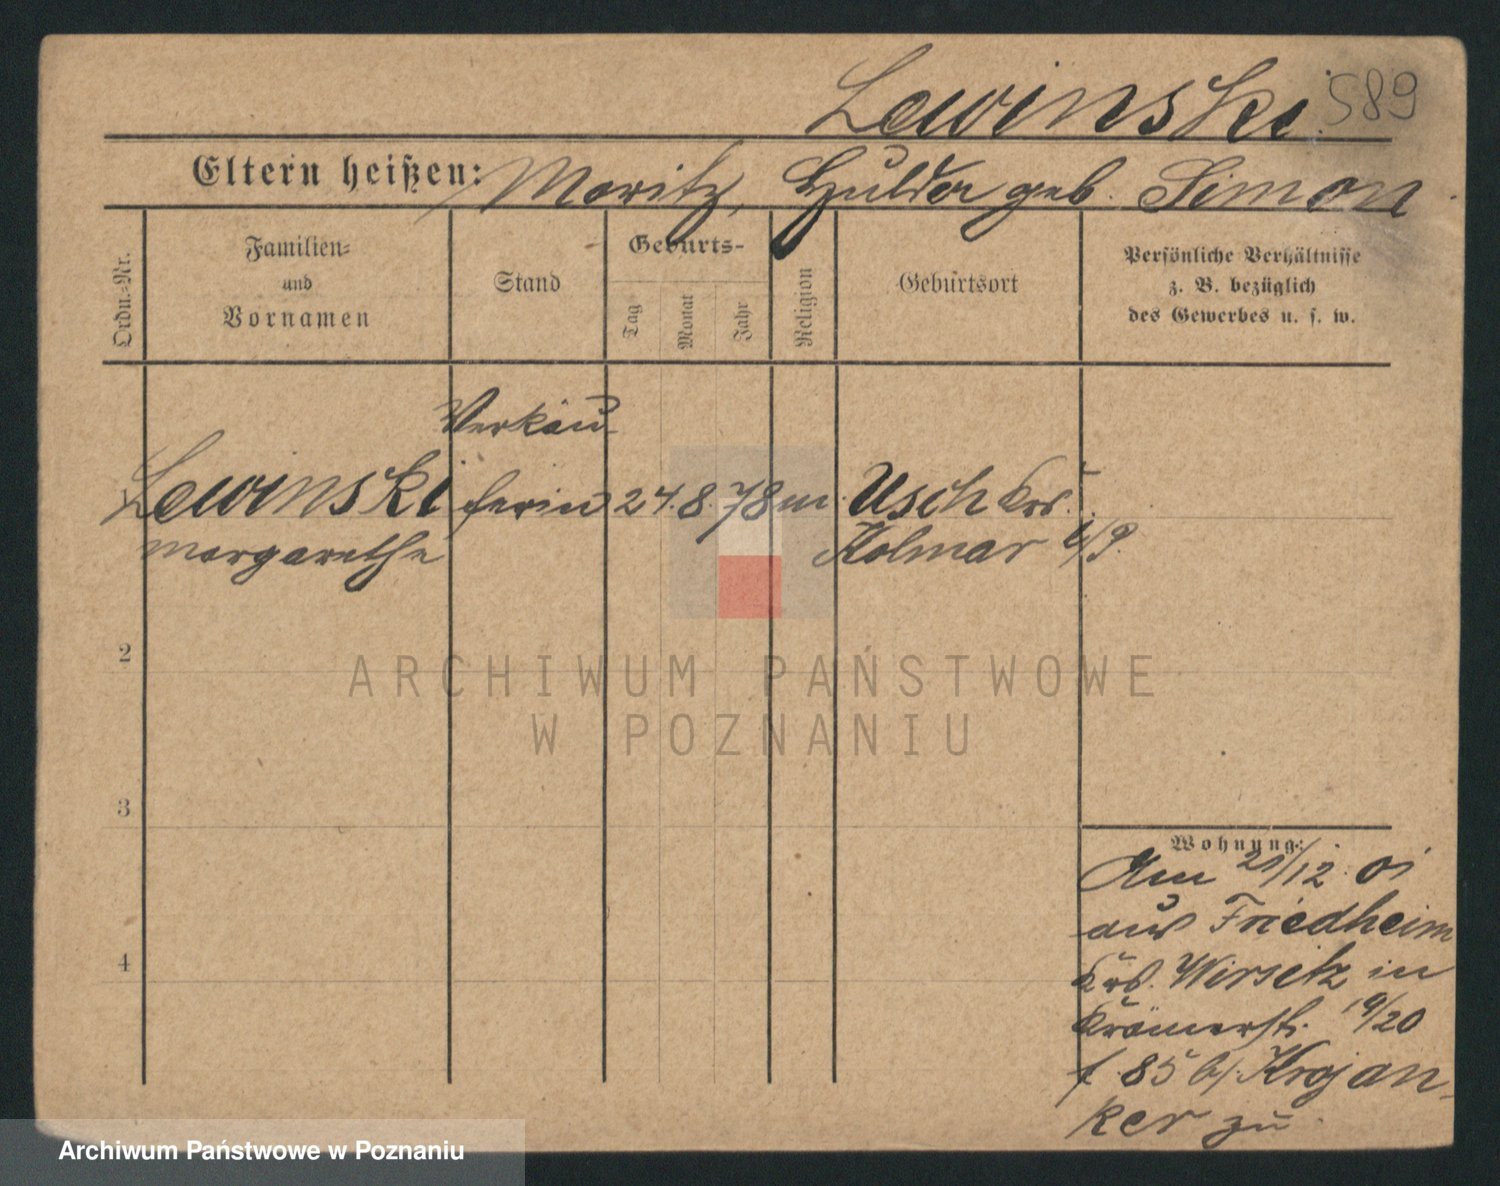 Lewinski.
589
Eltern heißen: Moritz, Hulda geb. Simon.
Ordn.-Nr.
Familien-
und
Vornamen
Stand
Geburts-
Tag
Monat
Jahr
Religion
Geburtsort
Persönliche Verhältnisse
z. B. bezüglich
des Gewerbes u. s. w.
Verkäu-
Lewinski ferin 24. 8. 78 m. Usch Krs.
Margarethe Kolmar i/P.
2
3
4
Wohnung:
Am 21/12 01
aus Friedheim
Krs. Wirsitz in
Krämerstr. 19/20
b/ Krojan-
ker zu
ARCHIWUM PAŃSTWOWE
W POZNANIU
Archiwum Państwowe w Poznaniu